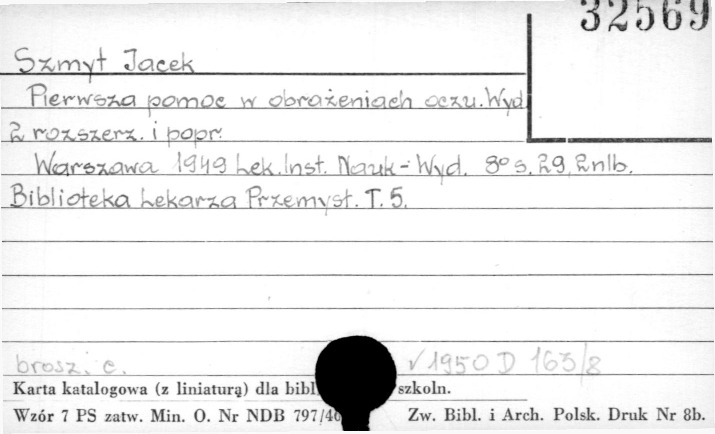 32569
Szmyt Jacek
Pierwsza pomoc w obrażeniach oczu. Wyd.
2 rozszerz. i popr.
Warszawa 1949 Lek. Inst. Nauk-Wyd. 8° s. 29, 2 nlb.
Biblioteka Lekarza Przemysł. T. 5.
brosz. c. √ 1950 D 163/8
Karta katalogowa (z liniaturą) dla szkoln.
Wzór 7 PS zatw. Min. O. Nr NDB Zw. Bibl. i Arch. Polsk. Druk Nr 8b.